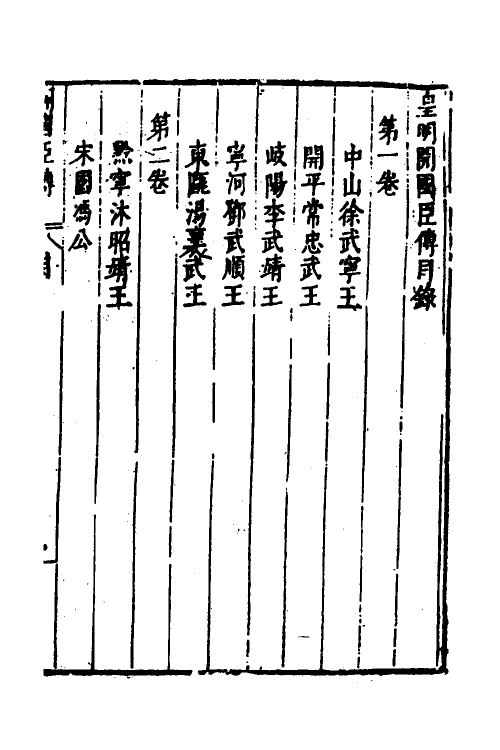 皇明開國臣傳目錄
第一卷
中山徐武寧王
開平常忠武王
岐陽李武靖王
寧河鄧武順王
東甌湯襄武王
第二卷
黔寧沐昭靖王
宋國馮公
國臣傳